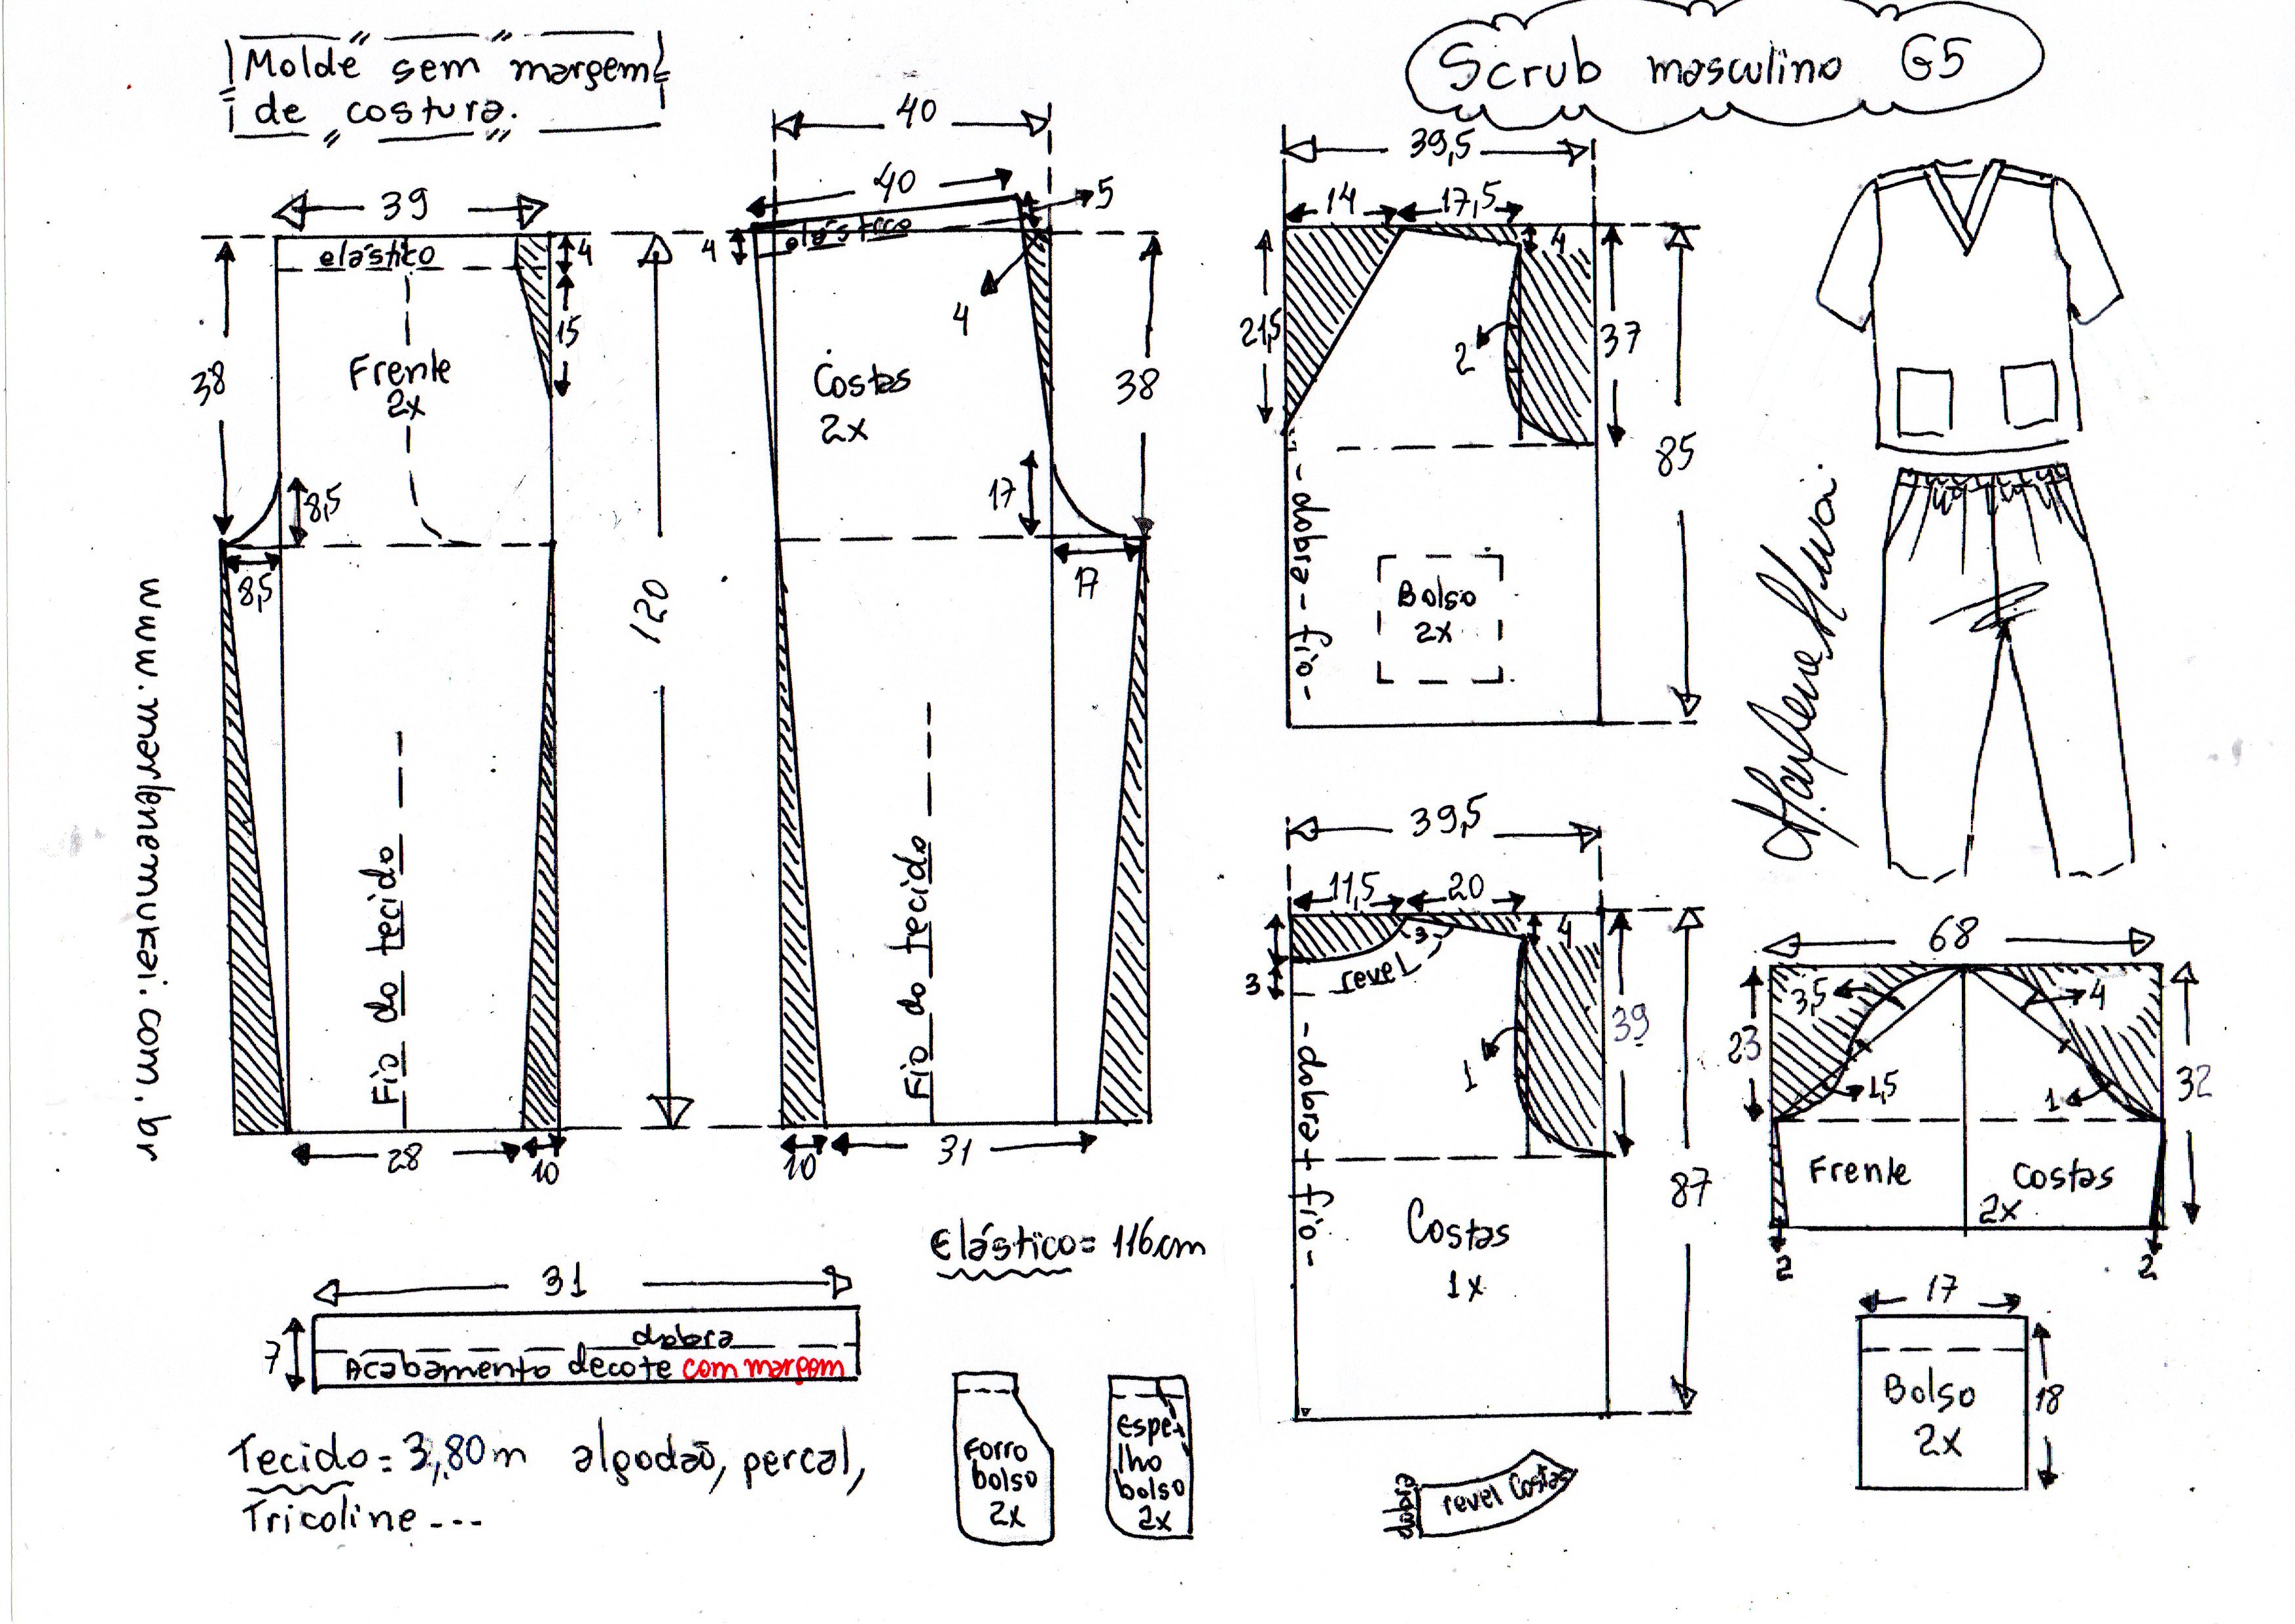 Molde sem margem
de costura.
Scrub masculino G5
39
elástico
4
15
38
Frente
2x
8,5
8,5
120
Fio do tecido
28
10
40
40
5
elástico
4
4
Costas
2x
38
17
17
Fio do tecido
10
31
39,5
14
17,5
4
21,5
2
37
85
- dobra - fio -
Bolso
2x
39,5
11,5
20
4
3
3
revel
1
39
87
- dobra + fio -
Costas
1x
Marlene Mukai
68
3,5
4
23
1,5
1
32
Frente
Costas
2x
2
2
17
18
Bolso
2x
www.marlenemukai.com.br
Elástico = 116cm
31
7
dobra
Acabamento decote com margem
Tecido = 3,80m algodão, percal,
Tricoline ---
Forro
bolso
2x
espe-
lho
bolso
2x
dobra
revel Costas